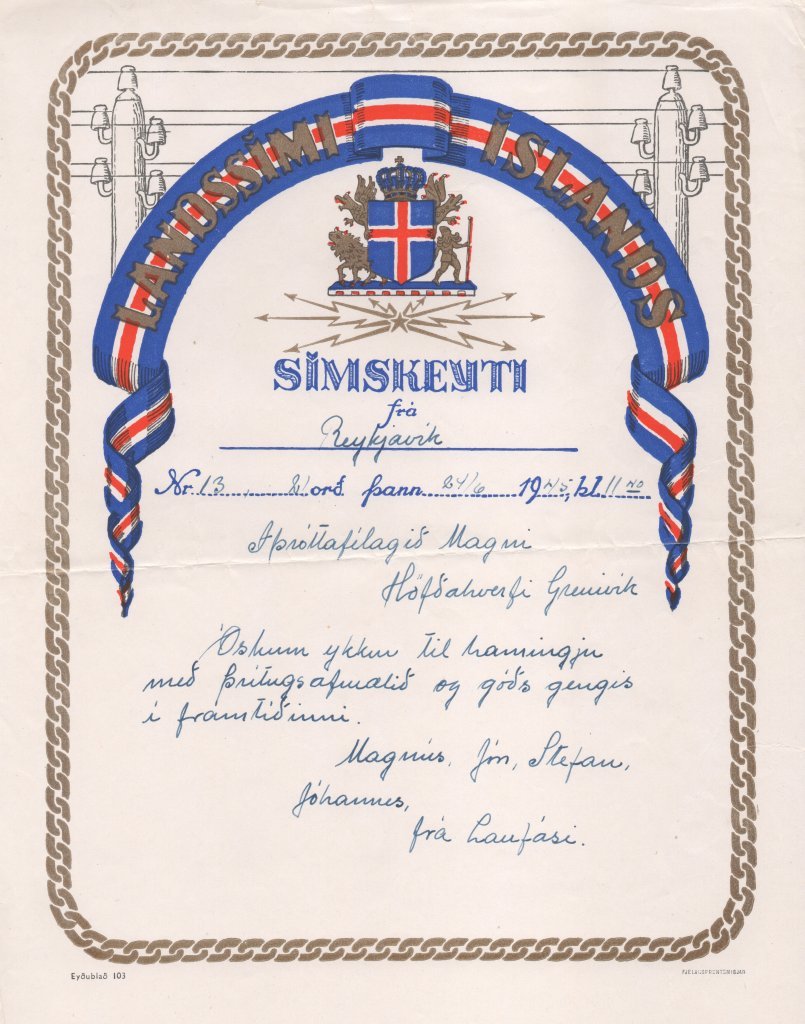 LANDSSÍMI ÍSLANDS
SÍMSKEYTI
frá
Reykjavík
Nr. 13 21 orð þann 24/6 1945, kl. 11 40
Íþróttafélagið Magni
Höfðahverfi Grenivík
Óskum ykkur til hamingju
með þrítugsafmælið og góðs gengis
í framtíðinni.
Magnús, Jón, Stefán,
Jóhannes,
frá Laufási.
Eyðublað 103